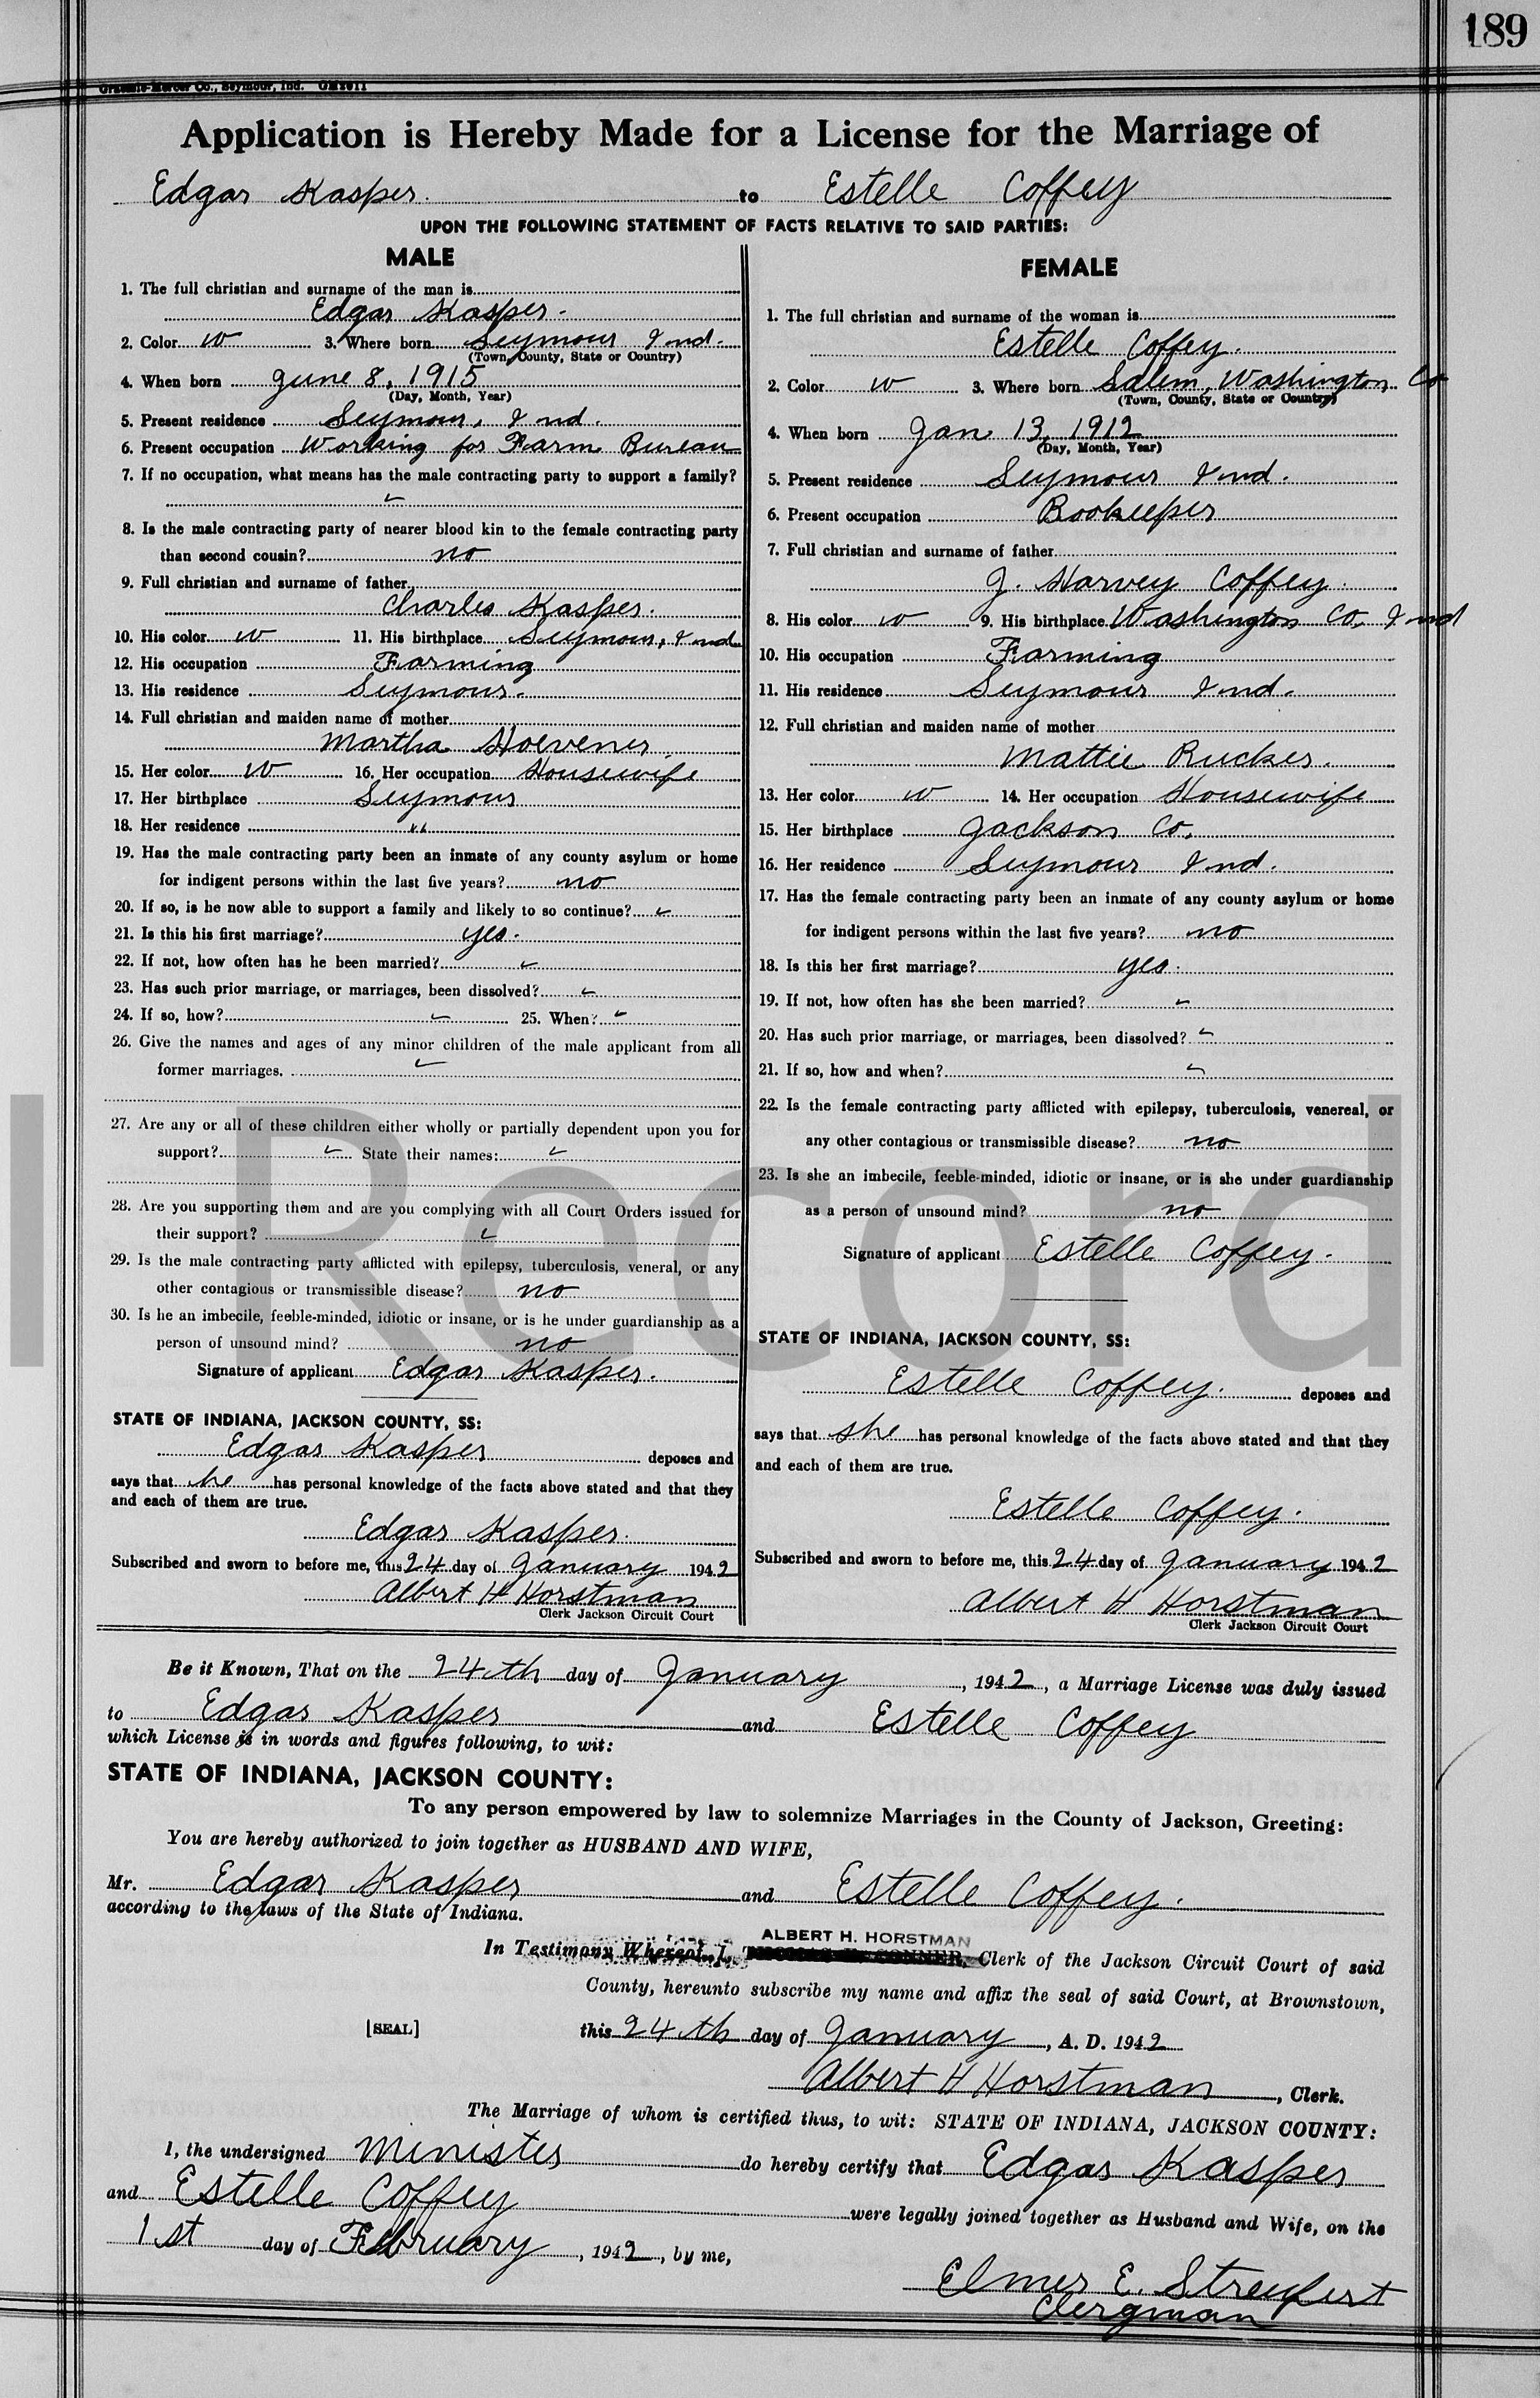 189
Graessle-Mercer Co., Seymour, Ind. GM2911
Application is Hereby Made for a License for the Marriage of
Edgar Kasper. to Estelle Coffey
UPON THE FOLLOWING STATEMENT OF FACTS RELATIVE TO SAID PARTIES:
MALE
1. The full christian and surname of the man is
Edgar Kasper.
2. Color W 3. Where born Seymour Ind.
(Town, County, State or Country)
4. When born June 8, 1915
(Day, Month, Year)
5. Present residence Seymour, Ind.
6. Present occupation Working for Farm Bureau
7. If no occupation, what means has the male contracting party to support a family?
8. Is the male contracting party of nearer blood kin to the female contracting party
than second cousin? no
9. Full christian and surname of father
Charles Kasper.
10. His color W 11. His birthplace Seymour, Ind
12. His occupation Farming
13. His residence Seymour.
14. Full christian and maiden name of mother
Martha Hoevener
15. Her color W 16. Her occupation Housewife
17. Her birthplace Seymour
18. Her residence "
19. Has the male contracting party been an inmate of any county asylum or home
for indigent persons within the last five years? no
20. If so, is he now able to support a family and likely to so continue?
21. Is this his first marriage? yes.
22. If not, how often has he been married?
23. Has such prior marriage, or marriages, been dissolved?
24. If so, how? 25. When?
26. Give the names and ages of any minor children of the male applicant from all
former marriages.
27. Are any or all of these children either wholly or partially dependent upon you for
support? State their names:
28. Are you supporting them and are you complying with all Court Orders issued for
their support?
29. Is the male contracting party afflicted with epilepsy, tuberculosis, veneral, or any
other contagious or transmissible disease? no
30. Is he an imbecile, feeble-minded, idiotic or insane, or is he under guardianship as a
person of unsound mind? no
Signature of applicant Edgar Kasper.
STATE OF INDIANA, JACKSON COUNTY, SS:
Edgar Kasper deposes and
says that he has personal knowledge of the facts above stated and that they
and each of them are true.
Edgar Kasper.
Subscribed and sworn to before me, this 24 day of January 1942
Albert H Horstman
Clerk Jackson Circuit Court
FEMALE
1. The full christian and surname of the woman is
Estelle Coffey.
2. Color W 3. Where born Salem, Washington Co
(Town, County, State or Country)
4. When born Jan 13, 1912
(Day, Month, Year)
5. Present residence Seymour Ind.
6. Present occupation Bookeeper
7. Full christian and surname of father
J. Harvey Coffey.
8. His color W 9. His birthplace Washington Co. Ind
10. His occupation Farming
11. His residence Seymour Ind.
12. Full christian and maiden name of mother
Mattie Rucker.
13. Her color W 14. Her occupation Housewife
15. Her birthplace Jackson Co.
16. Her residence Seymour Ind.
17. Has the female contracting party been an inmate of any county asylum or home
for indigent persons within the last five years? no
18. Is this her first marriage? yes.
19. If not, how often has she been married?
20. Has such prior marriage, or marriages, been dissolved?
21. If so, how and when?
22. Is the female contracting party afflicted with epilepsy, tuberculosis, venereal, or
any other contagious or transmissible disease? no
23. Is she an imbecile, feeble-minded, idiotic or insane, or is she under guardianship
as a person of unsound mind? no
Signature of applicant Estelle Coffey.
STATE OF INDIANA, JACKSON COUNTY, SS:
Estelle Coffey. deposes and
says that she has personal knowledge of the facts above stated and that they
and each of them are true.
Estelle Coffey.
Subscribed and sworn to before me, this 24 day of January 1942
Albert H Horstman
Clerk Jackson Circuit Court
Be it Known, That on the 24th day of January, 1942, a Marriage License was duly issued
to Edgar Kasper and Estelle Coffey
which License is in words and figures following, to wit:
STATE OF INDIANA, JACKSON COUNTY:
To any person empowered by law to solemnize Marriages in the County of Jackson, Greeting:
You are hereby authorized to join together as HUSBAND AND WIFE,
Mr. Edgar Kasper and Estelle Coffey.
according to the laws of the State of Indiana.
ALBERT H. HORSTMAN
In Testimony Whereof, I, Clerk of the Jackson Circuit Court of said
County, hereunto subscribe my name and affix the seal of said Court, at Brownstown,
[SEAL] this 24th day of January, A. D. 1942
Albert H Horstman, Clerk.
The Marriage of whom is certified thus, to wit: STATE OF INDIANA, JACKSON COUNTY:
I, the undersigned Minister do hereby certify that Edgar Kasper
and Estelle Coffey were legally joined together as Husband and Wife, on the
1st day of February, 1942, by me,
Elmer E. Streufert
Clergman
Record